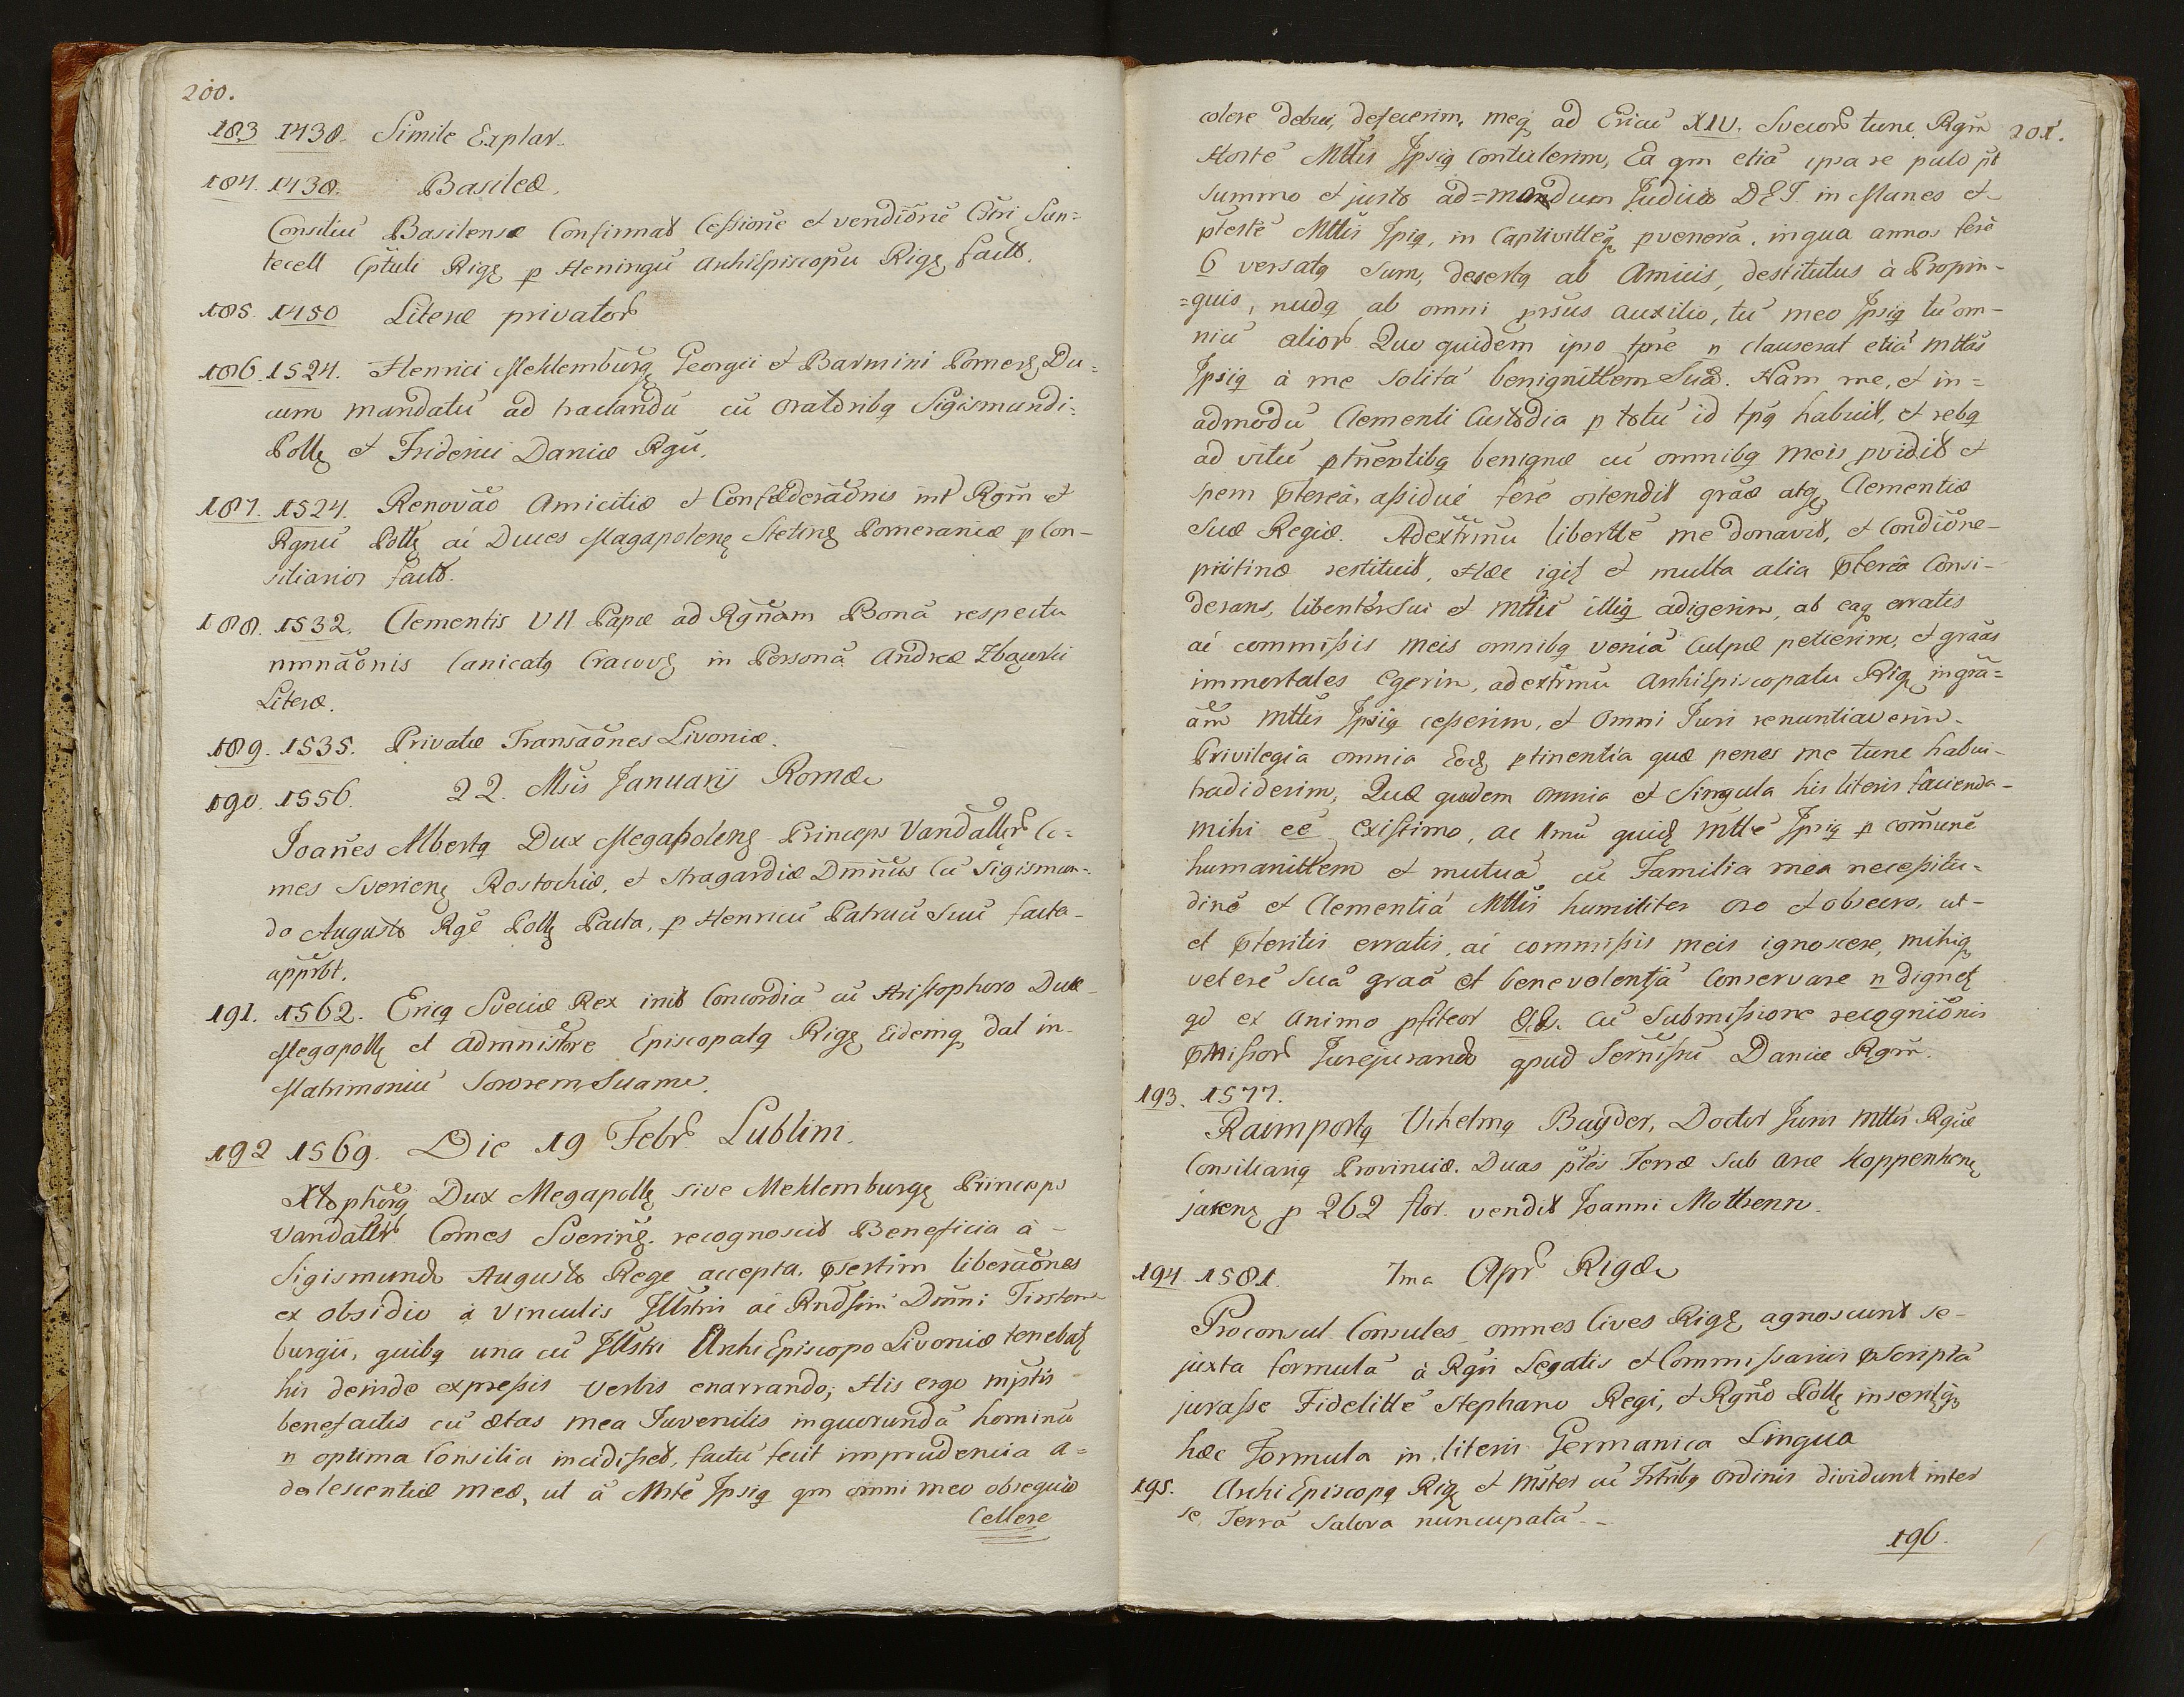 200.
183 1438. Simile Explar.
184. 1438. Basileæ.
Consiliu Basilense Confirmat Cessione et vendione Cstri Sun=
tecell Cptuli Rigę p Heningu Archiepiscopu Rigę fact.
185. 1450 Literæ privator
186. 1524. Henrici Mehlemburgę Georgii et Barmini Pomerę Du=
cum mandatu ad tractandu cu Oratoribq Sigismundi=
Pollę et Friderici Daniæ Rgu.
187. 1524. Renovao Amicitiæ et Confæderaonis int Rgm et
Rgnu Pollę ai Duces Magapolenę Stetinę Pomeraniæ p Con-
siliarios fact.
188. 1532. Clementis VII Papæ ad Rgnam Bona respectu
nmnaonis Canicatq Cracovę in Persona Andreæ Zbąski
Literæ.
189. 1535. Privatæ Transaones Livoniæ.
190. 1556. 22. Msis Januarij Romæ
Joanes Albertq Dux Megapolenę Princeps Vandallr Co=
mes Sverienę Rostochiæ, et Stragardiæ Dmnus Cu Sigismun=
do Augusto Rge Pollę Pacta, p Henricu Patruu Suu facta-
apprbt.
191. 1562. Ericq Sveciæ Rex init Concordia cu Hristophoro Duce
Megapollę et Admnistore Episcopatq Rigę Eidemq dat in-
Matrimoniu Sororem Suam.
192 1569. Die 19 Febr Lublini.
Xtophorq Dux Megapollę sive Mehlemburgę Princeps
Vandallr Comes Sverinę. recognoscit Beneficia à-
Sigismundo Augusto Rege accepta. psertim liberaones
ex obsidio à Vinculis Jllstris ai Rndssmi Dmni Firsten
burgii, quibq una cu Jllstri Archi Episcopo Livoniæ tenebatę
his deinde expressis verbis enarrando; His ergo mptis
benefactis cu ætas mea Juvenilis in quorunda hominu
n optima Consilia incidisset, factu fuit imprudencia a=
dolescentiæ meæ, ut à Mste Jpsiq qm omni meo obsequio
Collere
201.
colere debui, defecerim, meq ad Ericu XIV. Svecor tunc Rgm
Hoste Mttis Jpsiq Contulerim, Ea qm etia ipsa re puto pt
summo et justo ad=mondum Judicio DEI. in Manes et
ptestē Mttis Jpiq, in Captivitteq pvenera, in qua annos fere
6 versatq sum, desertq ab Amicis, destitutus à Propin-
=quis, nudq ab omni prsus auxilio, tu meo Jpsiq tu om-
niu alior Quo quidem ipso tpre n clauserat etia mttas
Jpsiq à me Solita benignittem Sua. Nam me, et in=
admodu Clementi Custodia p totu id tpq habuit, et rebq
ad vitu ptnentibq benignæ cu omnibq meis pvidit et
spem pterea, assidue fere ostendit graæ atqę Clementiæ
Suæ Regiæ. Adextrmu libertte me donavit, et Condione-
pristinæ restituit, Hæc igitę et multa alia pterea Consi-
derans, libenter Sui et Mttis illiq adigerim, ab eaq erratis
ai commissis meis omnibq venia Culpæ petierim, et graas
immortales Egerin, adextrmu Archiepiscopatu Rigę in gra=
am mttis Jpsiq cesserim, et Omni Juri renuntiaverim.
Privilegia omnia Eoꝗ ptinentia quæ penes me tunc habui-
tradiderim, Quæ quidem omnia et Singula his literis facienda-
mihi eē existimo, ac Smu quidę Mtte Jpsiq p comune
humanittem et mutua cu Familia mea necessitu=
dine et Clementia Mttis humiliter oro et obsecro, ut-
et pteritis erratis, ai commissis meis ignoscere, mihiq
vetere sua graa et benevolentja Conservare n dignetę
qd ex animo pfiteor &&. Cu Submissione recognionis
pmissor Jurejurando apud Sernissmu Daniæ Rgm.
193. 1577.
Raimportq Vihelmq Bayder, Doctor Juris Mttis Rgiæ
Consiliariq Provinciæ. Duas ptes Terræ Sub Arce Koppenhonę
jacenę p 262 flor. vendit Joanni Mothenn.
194. 1581. 7ma Apr Rigæ
Proconsul Consules omnes Cives Rigę agnoscunt se-
juxta formula à Rgii Legatis et Commissariis pscripta
jurasse Fidelitte Stephano Regi, et Rgno Pollę inseritqę
hæc Formula in literis Germanica Lingua
195. Archi Episcopq Rigę et Mster cu Frtribq ordinis dividunt inter
se Terra Salova nuncupata.-
196.